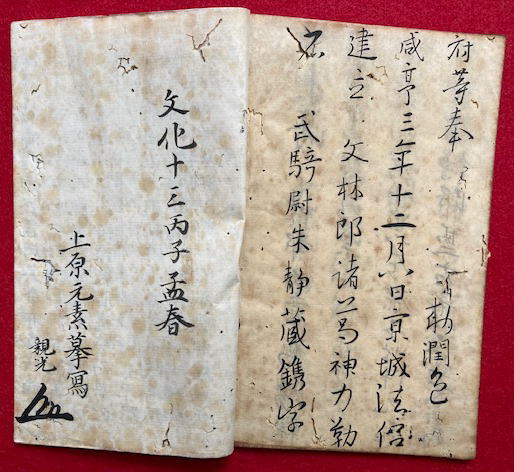 府等奉 勅潤色
咸亨三年十二月八日京城法侶
建立 文林郎諸葛神力勒
石 武騎尉朱静藏鐫字
文化十三丙子孟春
上原元素摹寫
親光